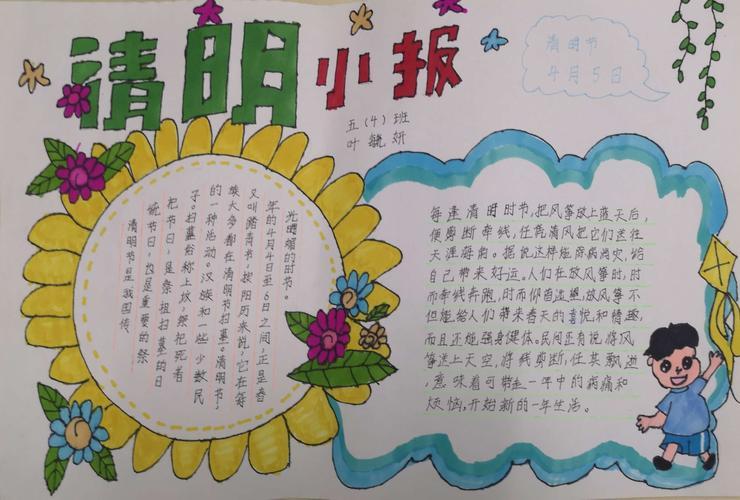 清明小报
清明节
4月5日
五(4)班
叶毓妍
清明节是我国传
统节日,也是重要的祭
祀节日,是祭祖扫墓的日
子。扫墓俗称上坟,祭祀死者
的一种活动。汉族和一些少数民
族大多都在清明节扫墓。清明节,
又叫踏青节,按阳历来说,它在每
年的4月4日至6日之间,正是春
光明媚的时节。
每逢清明时节,把风筝放上蓝天后,
便剪断牵线,任凭清风把它们送往
天涯海角。据说这样能除病消灾,给
自己带来好运。人们在放风筝时,时
而牵线奔跑,时而仰首远,放风筝不
但能给人们带来春天的喜悦和情趣,
而且还能强身健体。民间还有说,将风
筝送上天空,将线剪断,任其飘逝
,意味着可带走一年中的病痛和
烦恼,开始新的一年生活。